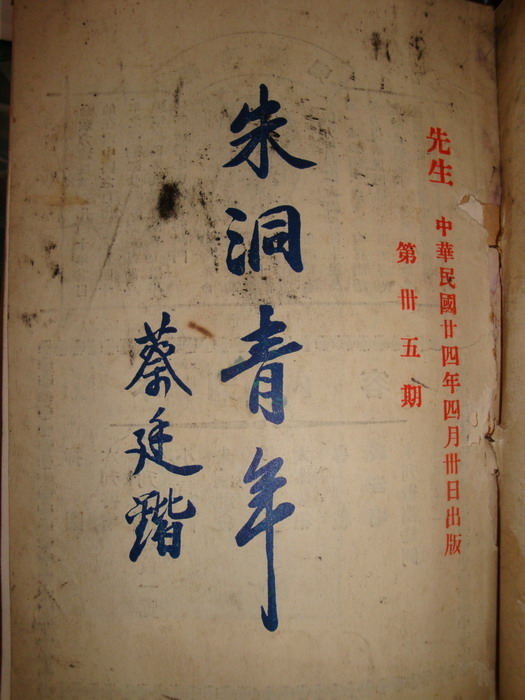 先生 中華民國廿四年四月卅日出版
第卅五期
朱洞青年
蔡廷鍇